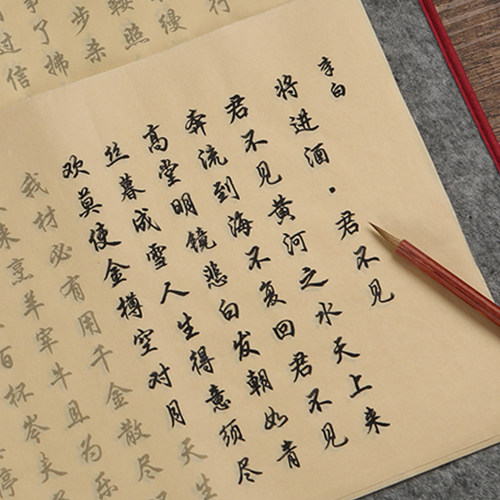 行
缦
鞍照
步杀
事了拂
过信
李白
将进酒·君不见
君不见黄河之水天上来
奔流到海不复回君不见
高堂明镜悲白发朝如青
丝暮成雪人生得意须尽
欢莫使金樽空对月天生
我材必有用千金散尽
来烹羊宰牛且为乐
百杯岑夫
停